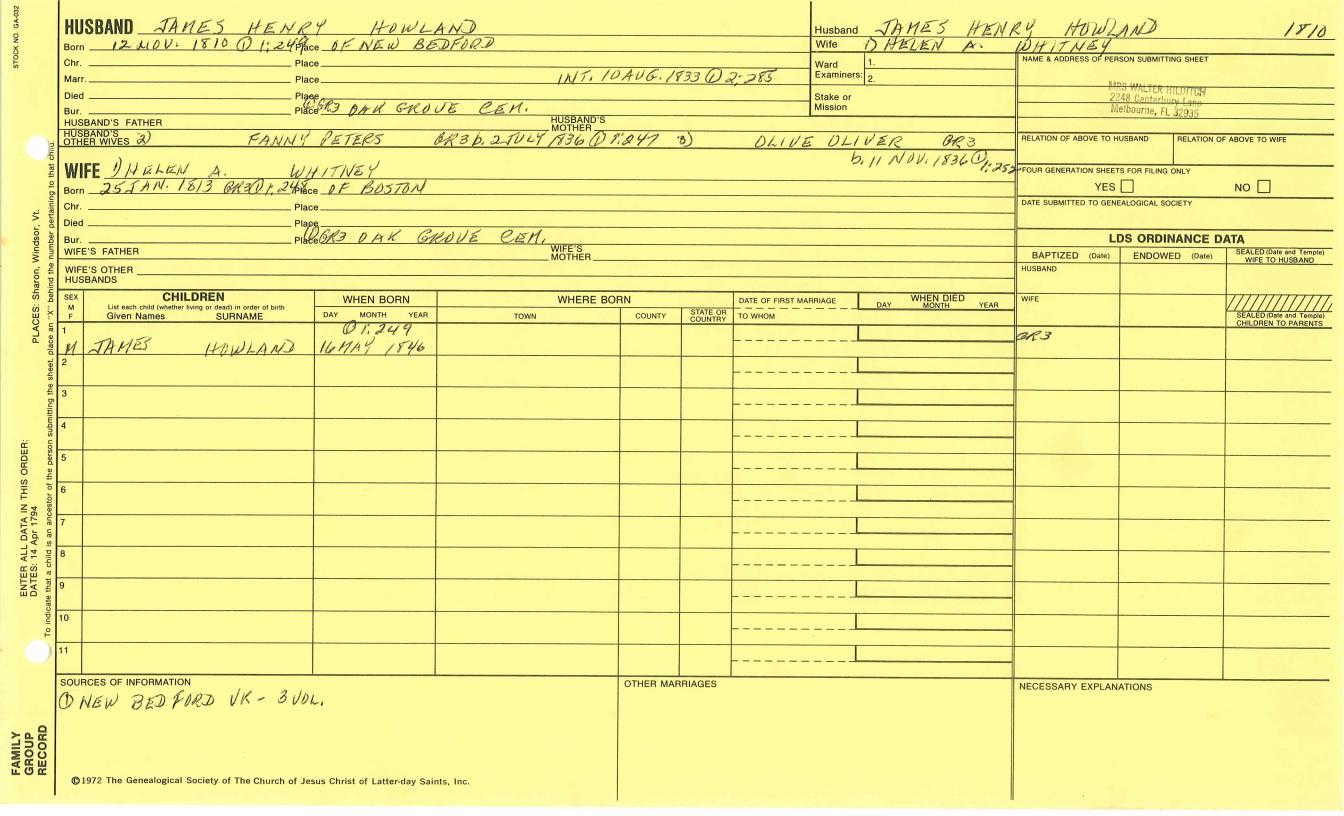 STOCK NO. GA-032
HUSBAND JAMES HENRY HOWLAND
Born 12 NOV. 1810 ① 1:249 Place OF NEW BEDFORD
Chr. Place
Marr. Place INT. 10 AUG. 1833 ① 2:285
Died Place
Bur. Place ① GR3 OAK GROVE CEM.
HUSBAND'S FATHER HUSBAND'S MOTHER
HUSBAND'S OTHER WIVES 2) FANNY PETERS GR3 b. 2 JULY 1836 ① 1:247 3) OLIVE OLIVER GR3
b. 11 NOV. 1836 ① 1:252
WIFE 1) HELEN A. WHITNEY
Born 25 JAN. 1813 GR3 ① 1:248 Place OF BOSTON
Chr. Place
Died Place
Bur. Place ① GR3 OAK GROVE CEM.
WIFE'S FATHER WIFE'S MOTHER
WIFE'S OTHER HUSBANDS
Husband JAMES HENRY HOWLAND 1810
Wife 1) HELEN A. WHITNEY
Ward Examiners: 1.
2.
Stake or Mission
NAME & ADDRESS OF PERSON SUBMITTING SHEET
MRS WALTER HILDITCH
2248 Canterbury Lane
Melbourne, FL 32935
RELATION OF ABOVE TO HUSBAND RELATION OF ABOVE TO WIFE
FOUR GENERATION SHEETS FOR FILING ONLY
YES NO
DATE SUBMITTED TO GENEALOGICAL SOCIETY
LDS ORDINANCE DATA
BAPTIZED (Date) ENDOWED (Date) SEALED (Date and Temple) WIFE TO HUSBAND
HUSBAND
WIFE
SEALED (Date and Temple) CHILDREN TO PARENTS
SEX M F CHILDREN
List each child (whether living or dead) in order of birth
Given Names SURNAME
WHEN BORN
DAY MONTH YEAR
WHERE BORN
TOWN COUNTY STATE OR COUNTRY
DATE OF FIRST MARRIAGE
TO WHOM
WHEN DIED
DAY MONTH YEAR
1 ① 1:249
M JAMES HOWLAND 16 MAY 1846 GR3
2
3
4
5
6
7
8
9
10
11
SOURCES OF INFORMATION
① NEW BEDFORD VR - 3 VOL.
OTHER MARRIAGES
NECESSARY EXPLANATIONS
©1972 The Genealogical Society of The Church of Jesus Christ of Latter-day Saints, Inc.
PLACES: Sharon, Windsor, Vt.
ENTER ALL DATA IN THIS ORDER:
DATES: 14 Apr 1794
To indicate that a child is an ancestor of the person submitting the sheet, place an "X" behind the number pertaining to that child.
FAMILY GROUP RECORD